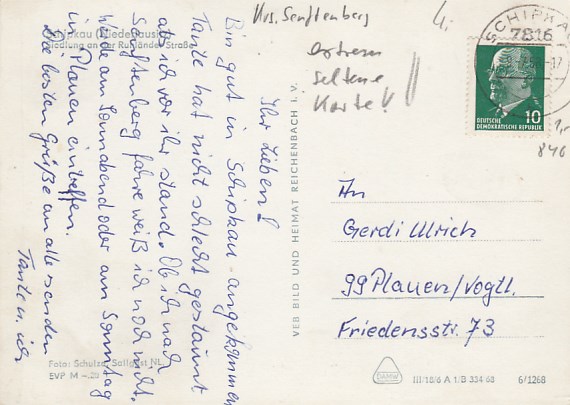 Krs. Senftenberg
4.-
extrem
seltene
Karte!
SCHIPKAU
7816
10
DEUTSCHE
DEMOKRATISCHE REPUBLIK
1,-
846
Schipkau (Niederlausitz)
Siedlung an der Ruhlander Straße
Ihr Lieben!
Bin gut in Schipkau angekommen
Tante hat nicht schlecht gestaunt
als ich vor ihr stand. Ob ich nach
Senftenberg fahre weiß ich noch nicht.
Werde am Sonnabend oder am Sonntag
in Plauen eintreffen.
Die besten Grüße an alle senden
Tante u. ich
VEB BILD UND HEIMAT REICHENBACH I. V.
An
Gerdi Ulrich
99 Plauen/Vogtl.
Friedensstr. 73
Foto: Schulze, Sallgast NL
EVP M -.20
III/18/6 A 1/B 334 68
6/1268